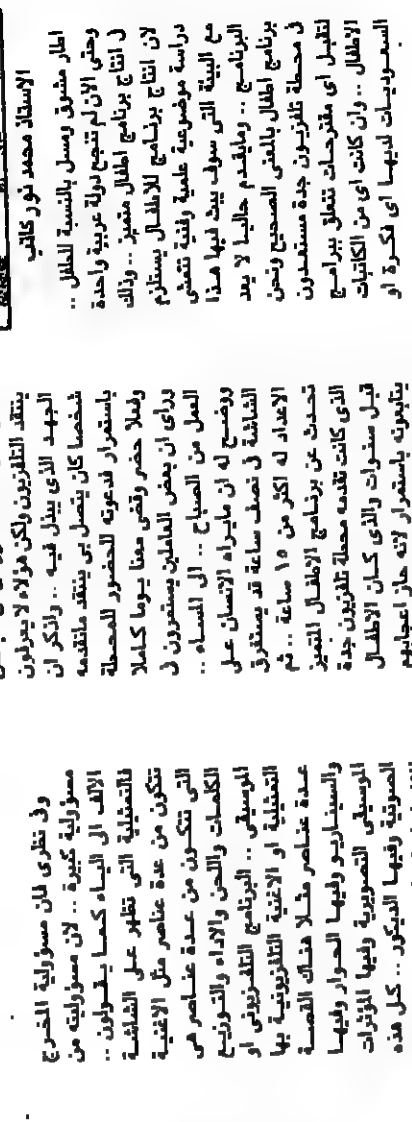 الاستاذ محمد نور كاتب
اطار مشوق ومسل بالنسبة للطفل ..
وحتى الان لم تنجح دولة عربية واحدة
ف انتاج برنامج اطفال متميز .. وذلك
لان انتاج برنامج للاطفال يستلزم
دراسة موضوعية علمية وفنية تتمشى
مع البيئة التى سوف يبث فيها هذا
البرنامج .. ومايقدم حاليا لا يعد
برنامج اطفال بالمعنى الصحيح ونحن
ف محطة تلفزيون جدة مستعدون
لتقبل اى مقترحات تتعلق ببرامج
الاطفال .. وان كانت اى من الكاتبات
السعوديات لديها اى فكرة او
ينتقد التلفزيون ولكن هؤلاء لا يعرفون
الجهد الذى يبذل فيه .. واذكر ان
شخصا كان يتصل بى ينتقد مانقدمه
باستمرار فدعوته للحضور للمحطة
وفعلا حضر وقضى معنا يوما كاملا
وراى ان بعض العاملين يستمرون ف
العمل من الصباح .. الى المساء ..
ووضح له ان مايراه الانسان على
الشاشة ف نصف ساعة قد يستغرق
الاعداد له اكثر من ١٥ ساعة .. ثم
تحدث عن برنامج الاطفال المتميز
الذى كانت تقدمه محطة تلفزيون جدة
قبل سنوات والذى كان الاطفال
يتابعونه باستمرار لانه حاز اعجابهم
وف نظرى فان مسؤولية المخرج
مسؤولية كبيرة .. لان مسؤوليته من
الالف الى الياء كما يقولون ..
فالتمثيلية التى تظهر على الشاشة
تتكون من عدة عناصر مثل الاغنية
التى تتكون من عدة عناصر هى
الكلمات واللحن والاداء والتوزيع
الموسيقى .. البرنامج التلفزيونى او
التمثيلية او الاغنية التلفزيونية بها
عدة عناصر مثلا هناك القصة
والسيناريو وفيها الحوار وفيها
الموسيقى التصويرية وفيها المؤثرات
الصوتية وفيها الديكور .. كل هذه